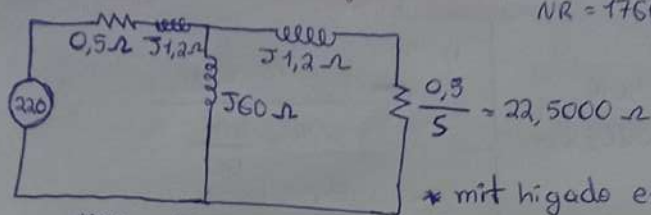 NR = 176
0,5Ω J1,2Ω J1,2Ω
220 J60Ω 0,5/S = 22,5000 Ω
* mit higado e